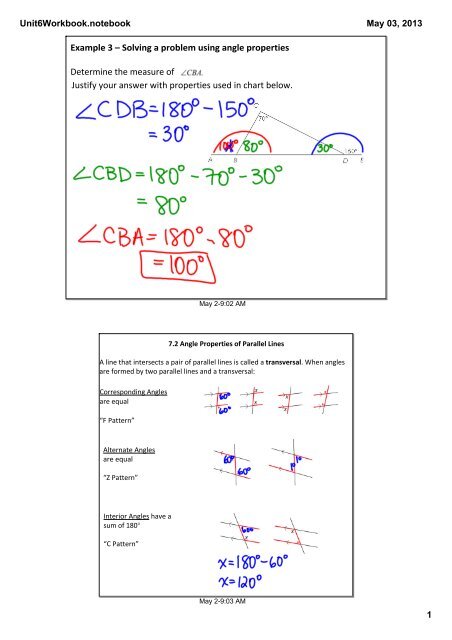 Unit6Workbook.notebook May 03, 2013
Example 3 – Solving a problem using angle properties
Determine the measure of ∠CBA.
Justify your answer with properties used in chart below.
∠CDB=180°-150°
=30°
C
70°
80° 30° 150°
A B D E
∠CBD=180°-70°-30°
= 80°
∠CBA=180°-80°
=100°
May 2-9:02 AM
7.2 Angle Properties of Parallel Lines
A line that intersects a pair of parallel lines is called a transversal. When angles
are formed by two parallel lines and a transversal:
Corresponding Angles
are equal
60°
60°
“F Pattern”
Alternate Angles
are equal
60°
60°
“Z Pattern”
Interior Angles have a
sum of 180°
60°
x
“C Pattern”
x=180°-60°
x=120°
May 2-9:03 AM
1